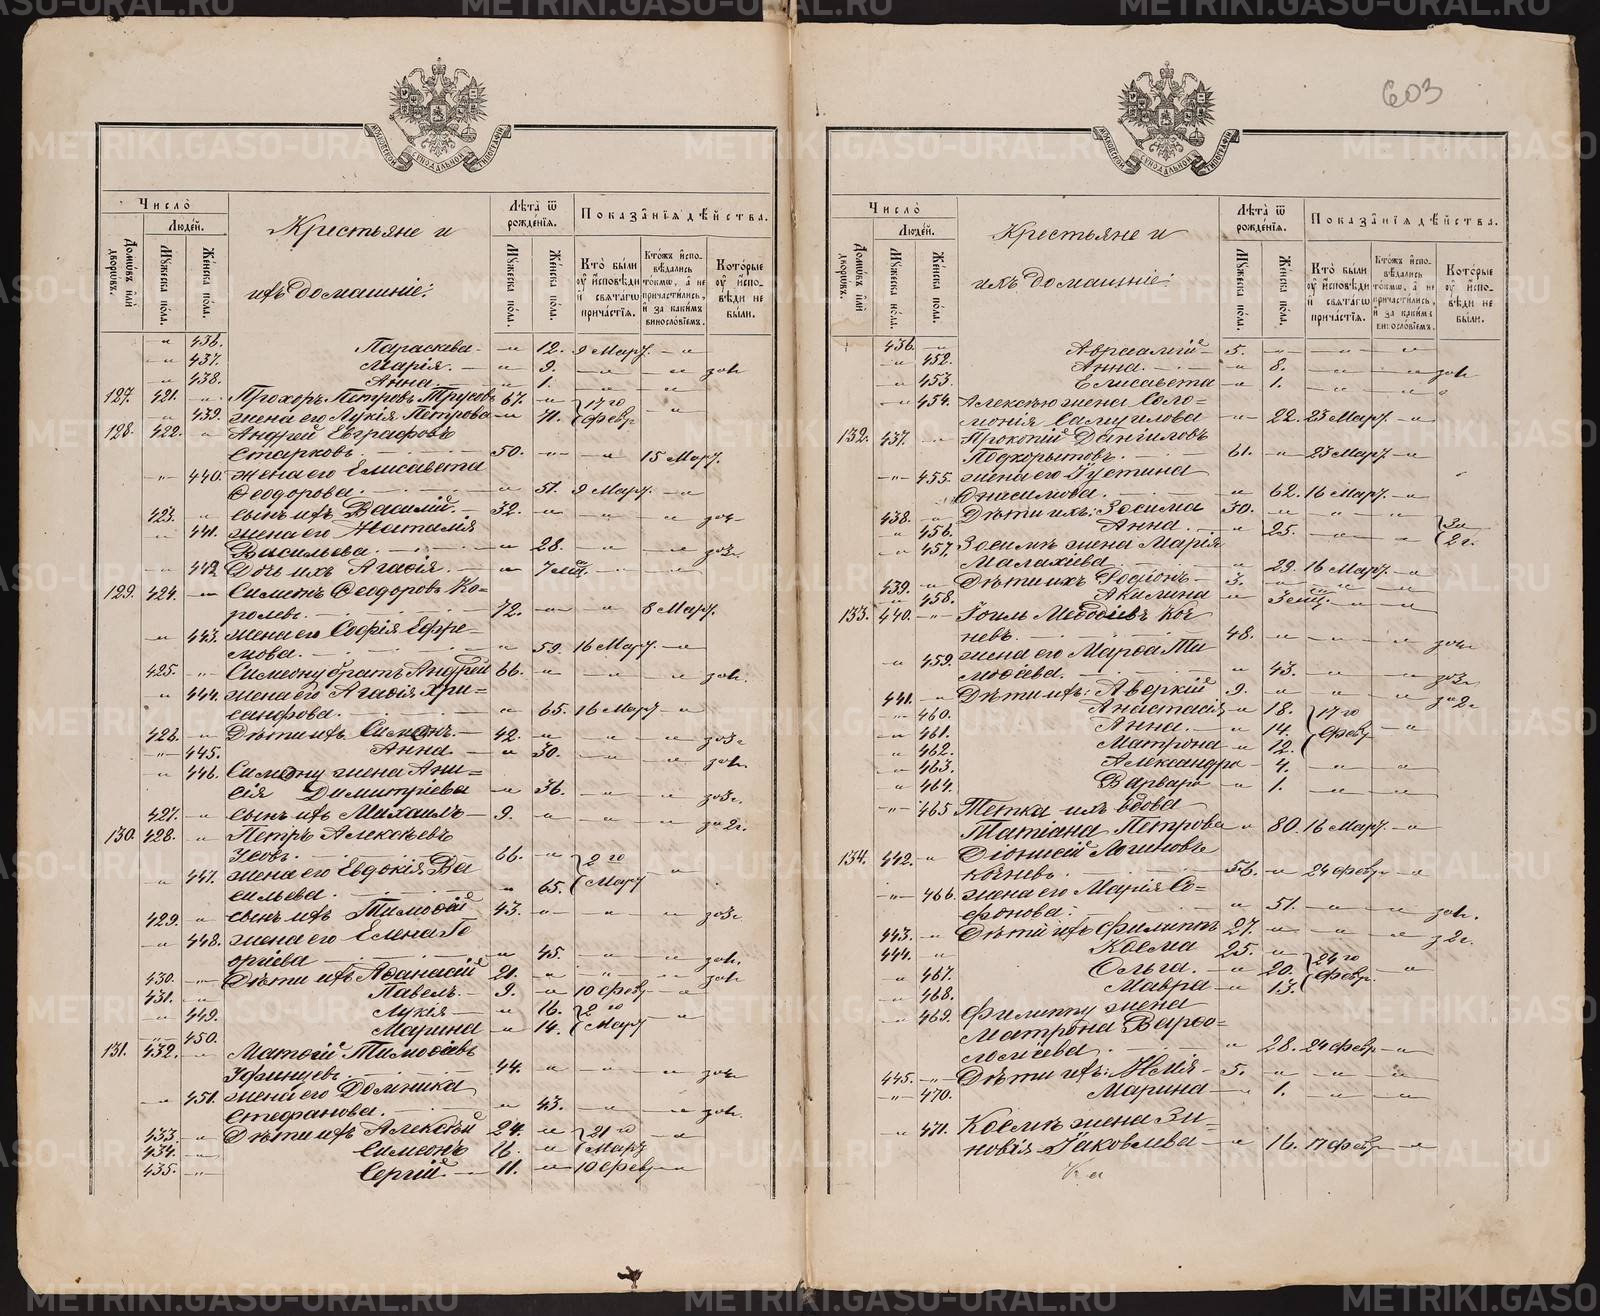 603
Число̀
Людей.
Домѡвъ или дворѡвъ.
Мꙋжеска пола.
Женска пола.
Крестьяне и
ихъ домашніе:
Лѣта ѿ рожденїѧ.
Мꙋжеска пола.
Женска пола.
Показанїѧ дѣйства.
Кто были оу исповѣди и свѧтагѡ причастїѧ.
Ктожъ исповѣдались токмѡ, а не причастились, и за какимъ винословїемъ.
Которые оу исповѣди не были.
" 436. Параскева - " 12. 9 Март. "
" 437. Марія. - " 9. " "
" 438. Анна. " 1. " "
127. 421. " Прохоръ Петровъ Трусовъ 67. " 17го
" 439. жена его Лукія Петрова " 71. Февр "
128. 422. " Андрей Евграфовъ
Старковъ. 50. " " 15 Март.
" 440. жена его Елисавета
Ѳеодорова. " 51. 9 Март. "
423. " сынъ ихъ Василій. 32. " " "
" 441. жена его Наталія
Васильева. " 28. " "
" 442 Дочь ихъ Агафія. " 7 " "
129. 424. " Симеонъ Ѳеодоровъ Ко=
ролевъ. 72. " " 8 Март.
" 443. жена его Софія Ефре=
мова. " 59. 16 Март. "
425. " Симеону братъ Андрей 66. " " "
" 444. жена его Агафія Хри=
санфова. " 65. 16 Март "
426. " Дѣти ихъ Симеонъ. 42. " " "
" 445. Анна. " 30. " "
" 446. Симеону жена Ани=
сія Димитріева " 36. " "
427. " сынъ ихъ Михаилъ 9. " " " за 2 г.
130. 428. " Петръ Алексѣевъ
Усовъ. 66. " 2 го
" 447. жена его Евдокія Ва
сильева. " 65. Март "
429. " сынъ ихъ Тимоѳей 43. " " "
" 448. жена его Елена Ге
оргіева " 45. " "
430. " Дѣти ихъ Аѳанасій 21. " " "
431. " Павелъ. 9. " 10 Февр "
" 449. Лукія " 16. 2 го
" 450. Марина " 14. Март "
131. 432. " Матѳей Тимоѳеевъ
Уфинцевъ. 44. " " "
" 451. жена его Домника
Стефанова. " 43. " "
433. " Дѣти ихъ Алексѣй 24. " 21 го
434. " Симеонъ 16. " Март "
435. " Сергій 11. " 10 Февр "
Число̀
Людей.
Домѡвъ или дворѡвъ.
Мꙋжеска пола.
Женска пола.
Крестьяне и
ихъ домашніе:
Лѣта ѿ рожденїѧ.
Мꙋжеска пола.
Женска пола.
Показанїѧ дѣйства.
Кто были оу исповѣди и свѧтагѡ причастїѧ.
Ктожъ исповѣдались токмѡ, а не причастились, и за какимъ винословїемъ.
Которые оу исповѣди не были.
436. " Авраамій 5. " " "
" 452. Анна. " 8. " "
" 453. Елисавета " 1. " "
" 454. Алексѣю жена Соло=
монія Самуилова " 22. 23 Март. "
132. 437. " Прокопій Даниловъ
Подкорытовъ. 61. " 23 Март "
" 455. жена его Іустина
Онисимова. " 62. 16 Март. "
438. " Дѣти ихъ: Зосима 30. " " "
" 456. Анна. " 25. " " За 2 г.
" 457. Зосимѣ жена Марія
Малахіева. " 29. 16 Март. "
439. " Дѣти ихъ Родіонъ 3. " " "
" 458. Акилина " " "
133. 440. " Іоиль Меѳодіевъ Кор
невъ. 48. " " "
" 459. жена его Марѳа Ти
моѳеева. " 43. " "
441. " Дѣти ихъ: Аверкій 9. " " " за 2 г
" 460. Анастасія " 18. 17 го
" 461. Анна. " 14. Февр "
" 462. Матрона " 12.
" 463. Александра " 4. " "
" 464. Варвара " 1. " "
" 465 Тетка ихъ вдова
Татіана Петрова " 80. 16 Март. "
134. 442. " Діонисій Логиновъ
Корневъ. 56. " 24 Февр "
" 466. жена его Марія Со=
фонова: " 51. " "
443. " Дѣти ихъ Филиппъ 27. " " "
444. " Косма 25. " 24 го
" 467. Ольга. " 20. Февр. "
" 468. Мавра " 13.
" 469. Филиппу жена
Матрона Варѳо=
ломеева. " 28. 24 Февр "
445. " Дѣти ихъ: Илія 5. " " "
" 470. Марина " 1. " "
" 471. Космѣ жена Зи=
новія Іаковлева " 16. 17 Февр "
METRIKI.GASO-URAL.RU